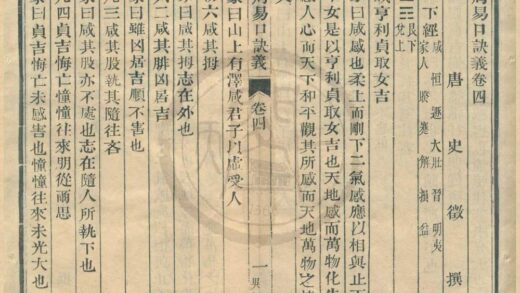 周易口訣義卷四
唐 史徵 撰
下經 咸 恒 遯 大壯 晉 明夷
家人 睽 蹇 解 損 益
艮下
兌上
咸亨利貞取女吉
曰咸感也柔上而剛下二氣感應以相與止
下女是以亨利貞取女吉也天地感而萬物化生
感人心而天下和平觀其所感而天地萬物之情
矣
周易口訣義 卷四 一
象曰山上有澤咸君子以虛受人
初六咸其拇
象曰咸其拇志在外也
六二咸其腓凶居吉
象曰雖凶居吉順不害也
九三咸其股執其隨往吝
象曰咸其股亦不處也志在隨人所執下也
九四貞吉悔亡憧憧往來朋從爾思
象曰貞吉悔亡未感害也憧憧往來未光大也